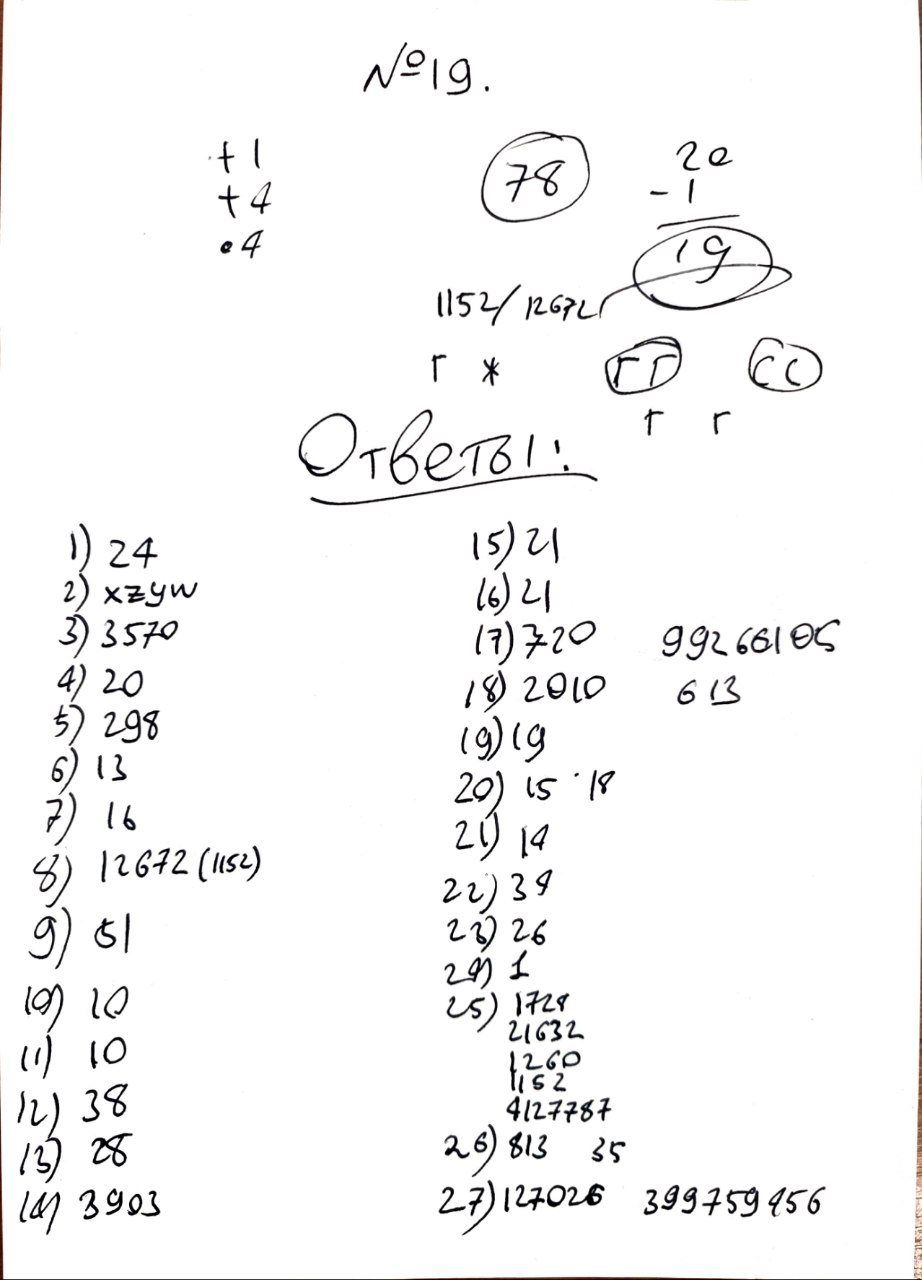 №19.
+1
+4
•4
78
20
-1
19
1152/12672
Г *
ГГ
СС
Г Г
Ответы:
1) 24
2) xzyw
3) 3570
4) 20
5) 298
6) 13
7) 16
8) 12672 (1152)
9) 51
10) 10
11) 10
12) 38
13) 28
14) 3903
15) 21
16) 21
17) 720 99266105
18) 2010 613
19) 19
20) 15 18
21) 14
22) 34
23) 26
24) 1
25) 1728
21632
1260
1152
4127787
26) 813 35
27) 127026 399759456